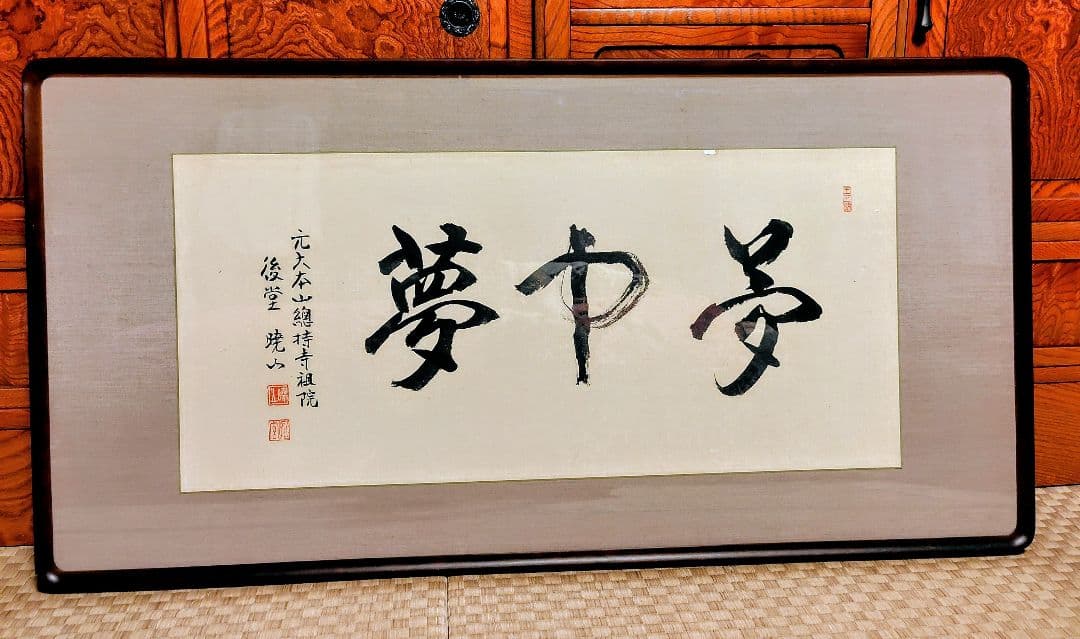 夢中夢
元大本山總持寺祖院
後堂 暁山